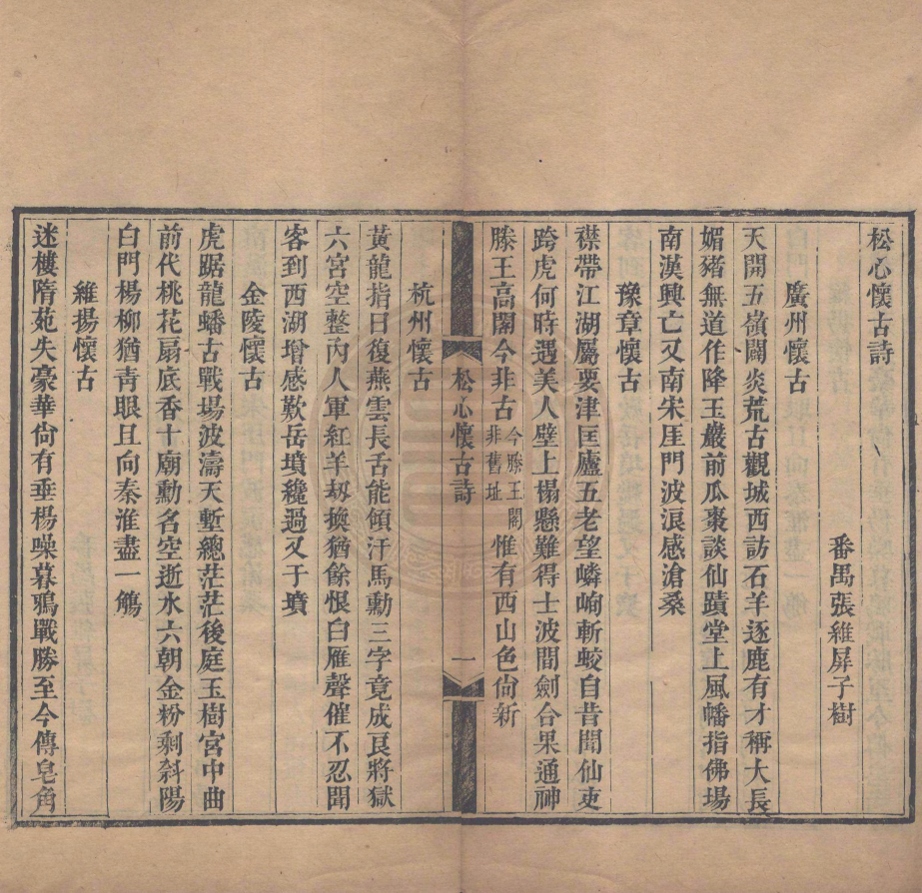 松心懷古詩
番禺張維屏子樹
廣州懷古
天開五嶺闢炎荒古觀城西訪石羊逐鹿有才稱大長
媚豬無道作降王巖前瓜棗談仙蹟堂上風幡指佛場
南漢興亡又南宋厓門波浪感滄桑
豫章懷古
襟帶江湖屬要津匡廬五老望嶙峋斬蛟自昔聞仙吏
跨虎何時遇美人壁上榻懸難得士波間劍合果通神
滕王高閣今非古今滕王閣非舊址惟有西山色尙新
松心懷古詩
一
杭州懷古
黃龍指日復燕雲長舌能傾汗馬勳三字竟成良將獄
六宮空整內人軍紅羊刼換猶餘恨白雁聲催不忍聞
客到西湖增感歎岳墳纔過又于墳
金陵懷古
虎踞龍蟠古戰場波濤天塹總茫茫後庭玉樹宮中曲
前代桃花扇底香十廟勳名空逝水六朝金粉剩斜陽
白門楊柳猶靑眼且向秦淮盡一觴
維揚懷古
迷樓隋苑失豪華尙有垂楊噪暮鴉戰勝至今傳皂角